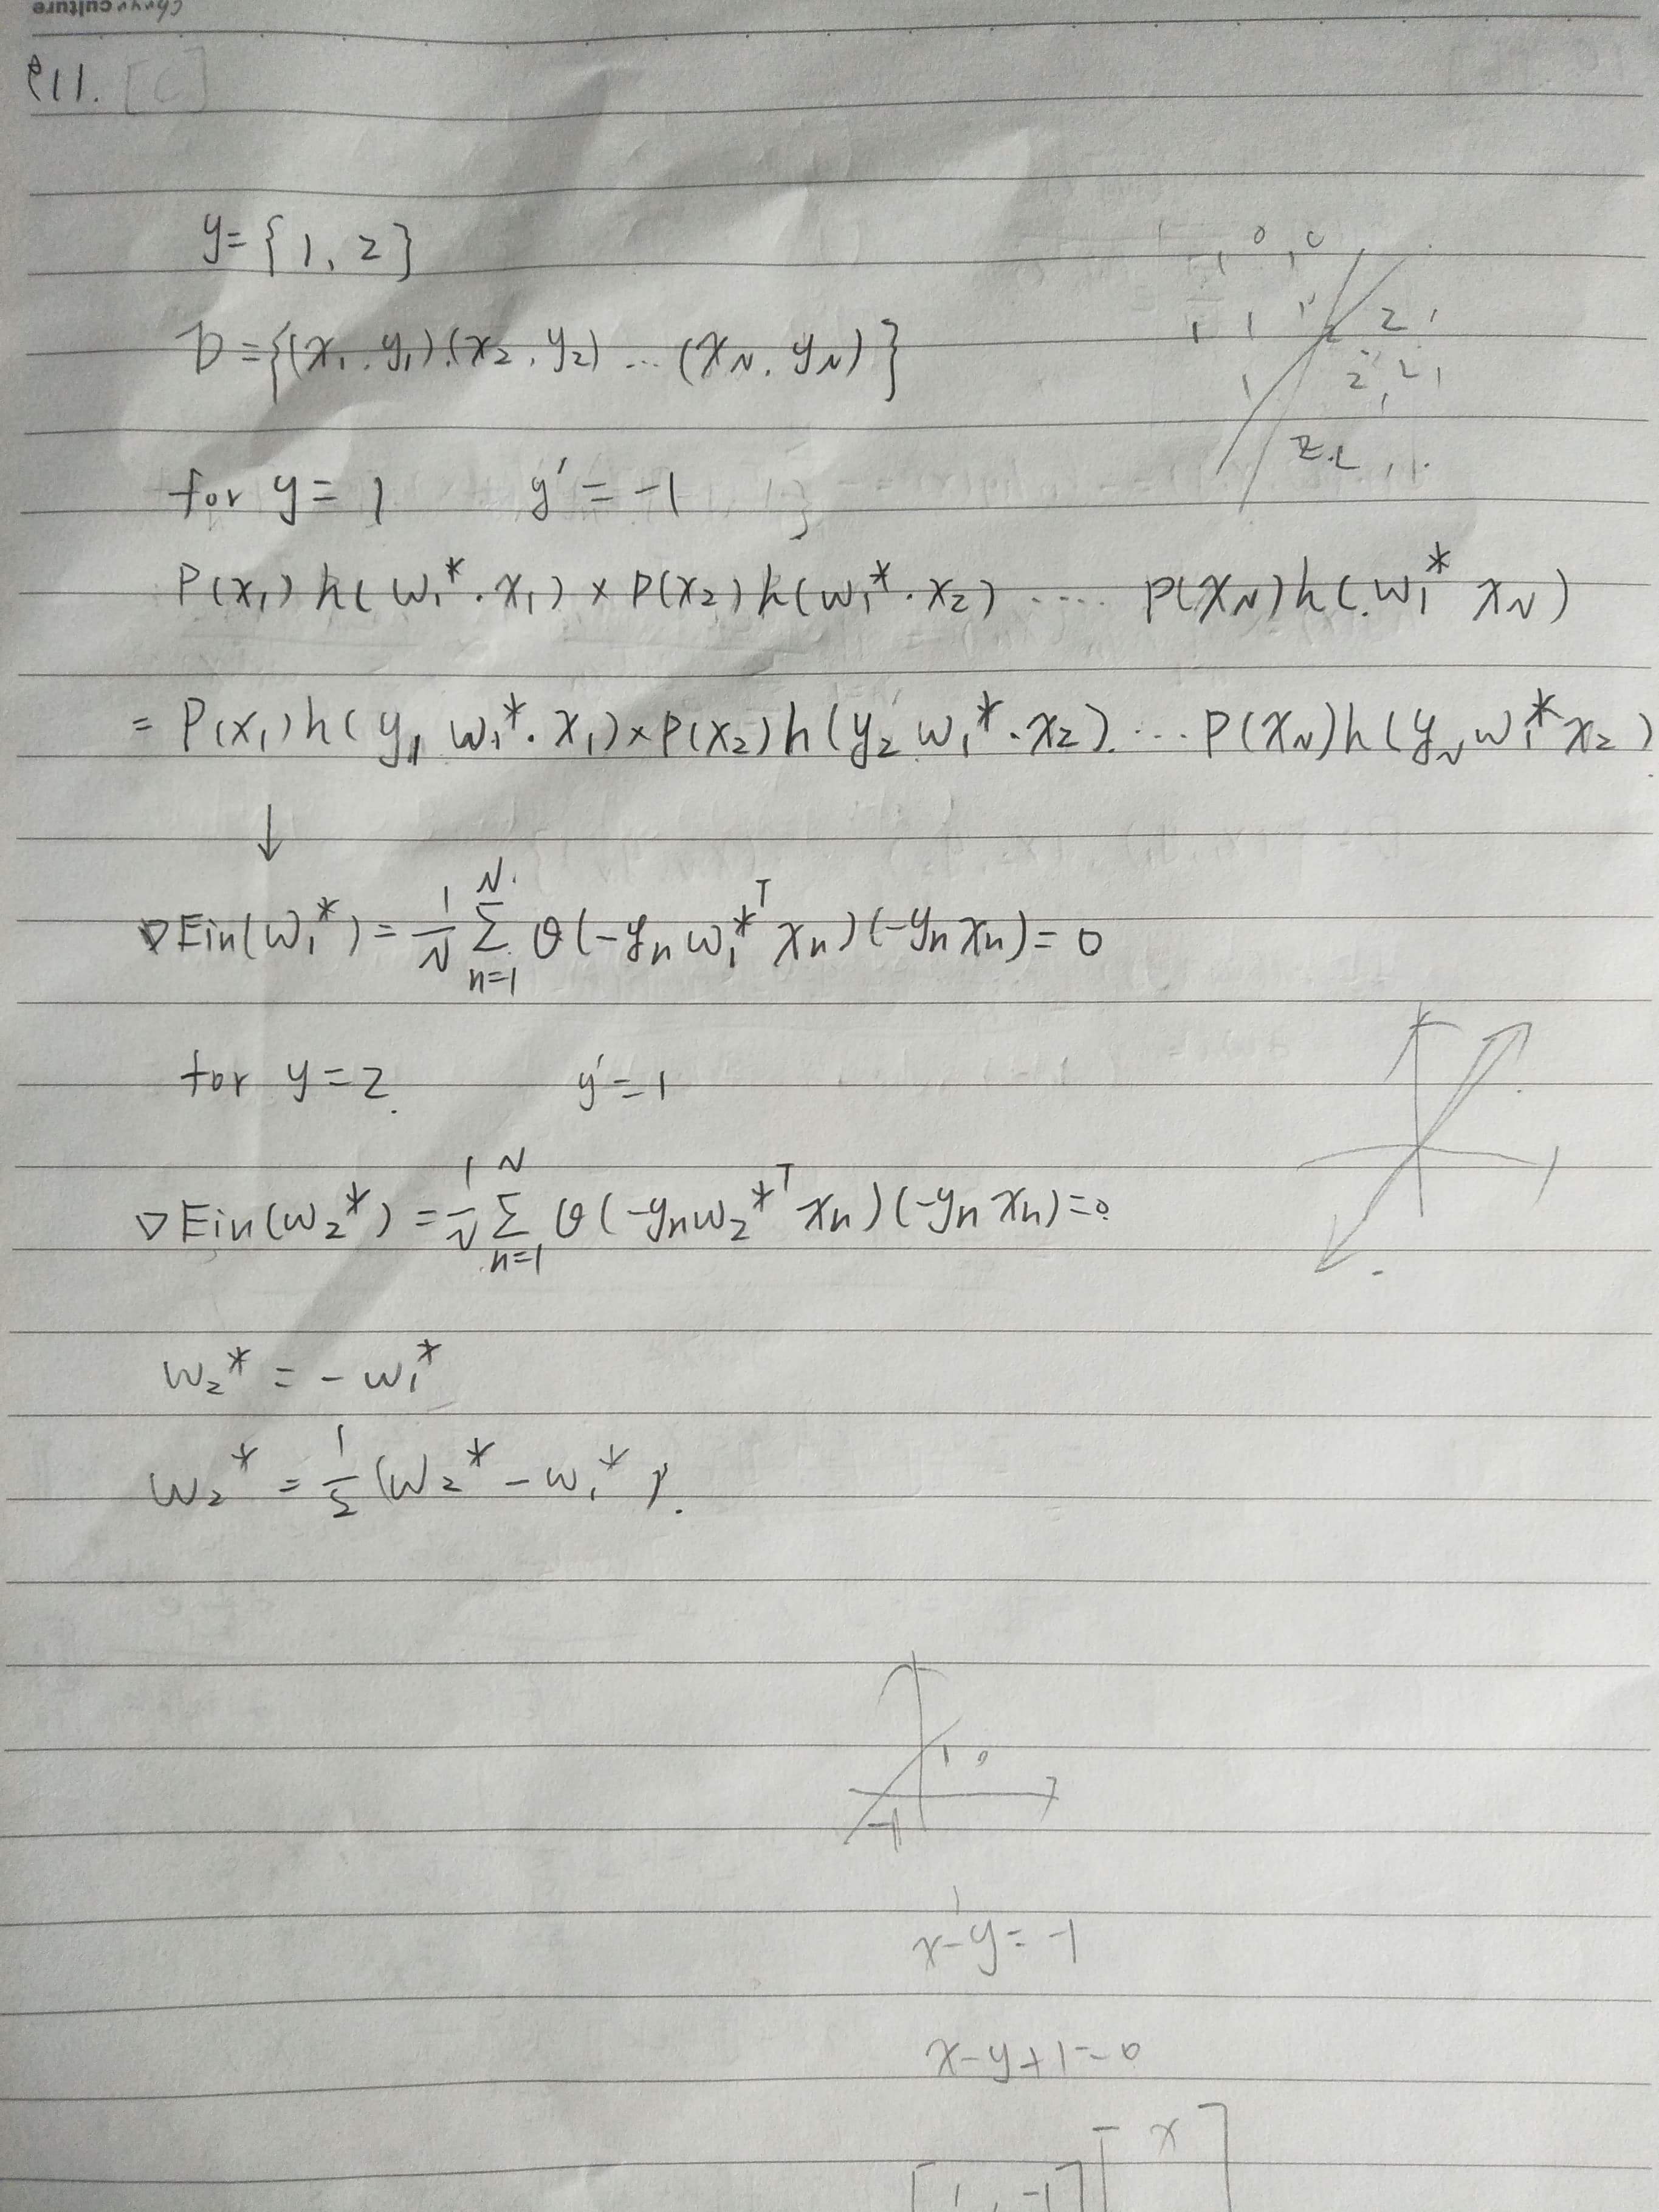 culture
P11. [C]
y = {1, 2}
D = {(x₁, y₁).(x₂, y₂) ... (x_N, y_N)}
for y = 1 y' = -1
P(x₁) h(w₁* · x₁) × P(x₂) h(w₁* · x₂) ..... P(x_N) h(w₁* x_N)
= P(x₁) h(y₁ w₁* · x₁) × P(x₂) h(y₂ w₁* · x₂) .... P(x_N) h(y_N w₁* x₂)
↓
∇Ein(w₁*) = 1/N Σ_{n=1}^{N} θ(-y_n w₁*ᵀ x_n)(-y_n x_n) = 0
for y = 2. y' = 1
∇Ein(w₂*) = 1/N Σ_{n=1}^{N} θ(-y_n w₂*ᵀ x_n)(-y_n x_n) = 0
w₂* = - w₁*
w₂* = 1/2 (w₂* - w₁*).
1
-1
x-y = -1
x-y+1=0
[1, -1] [x]